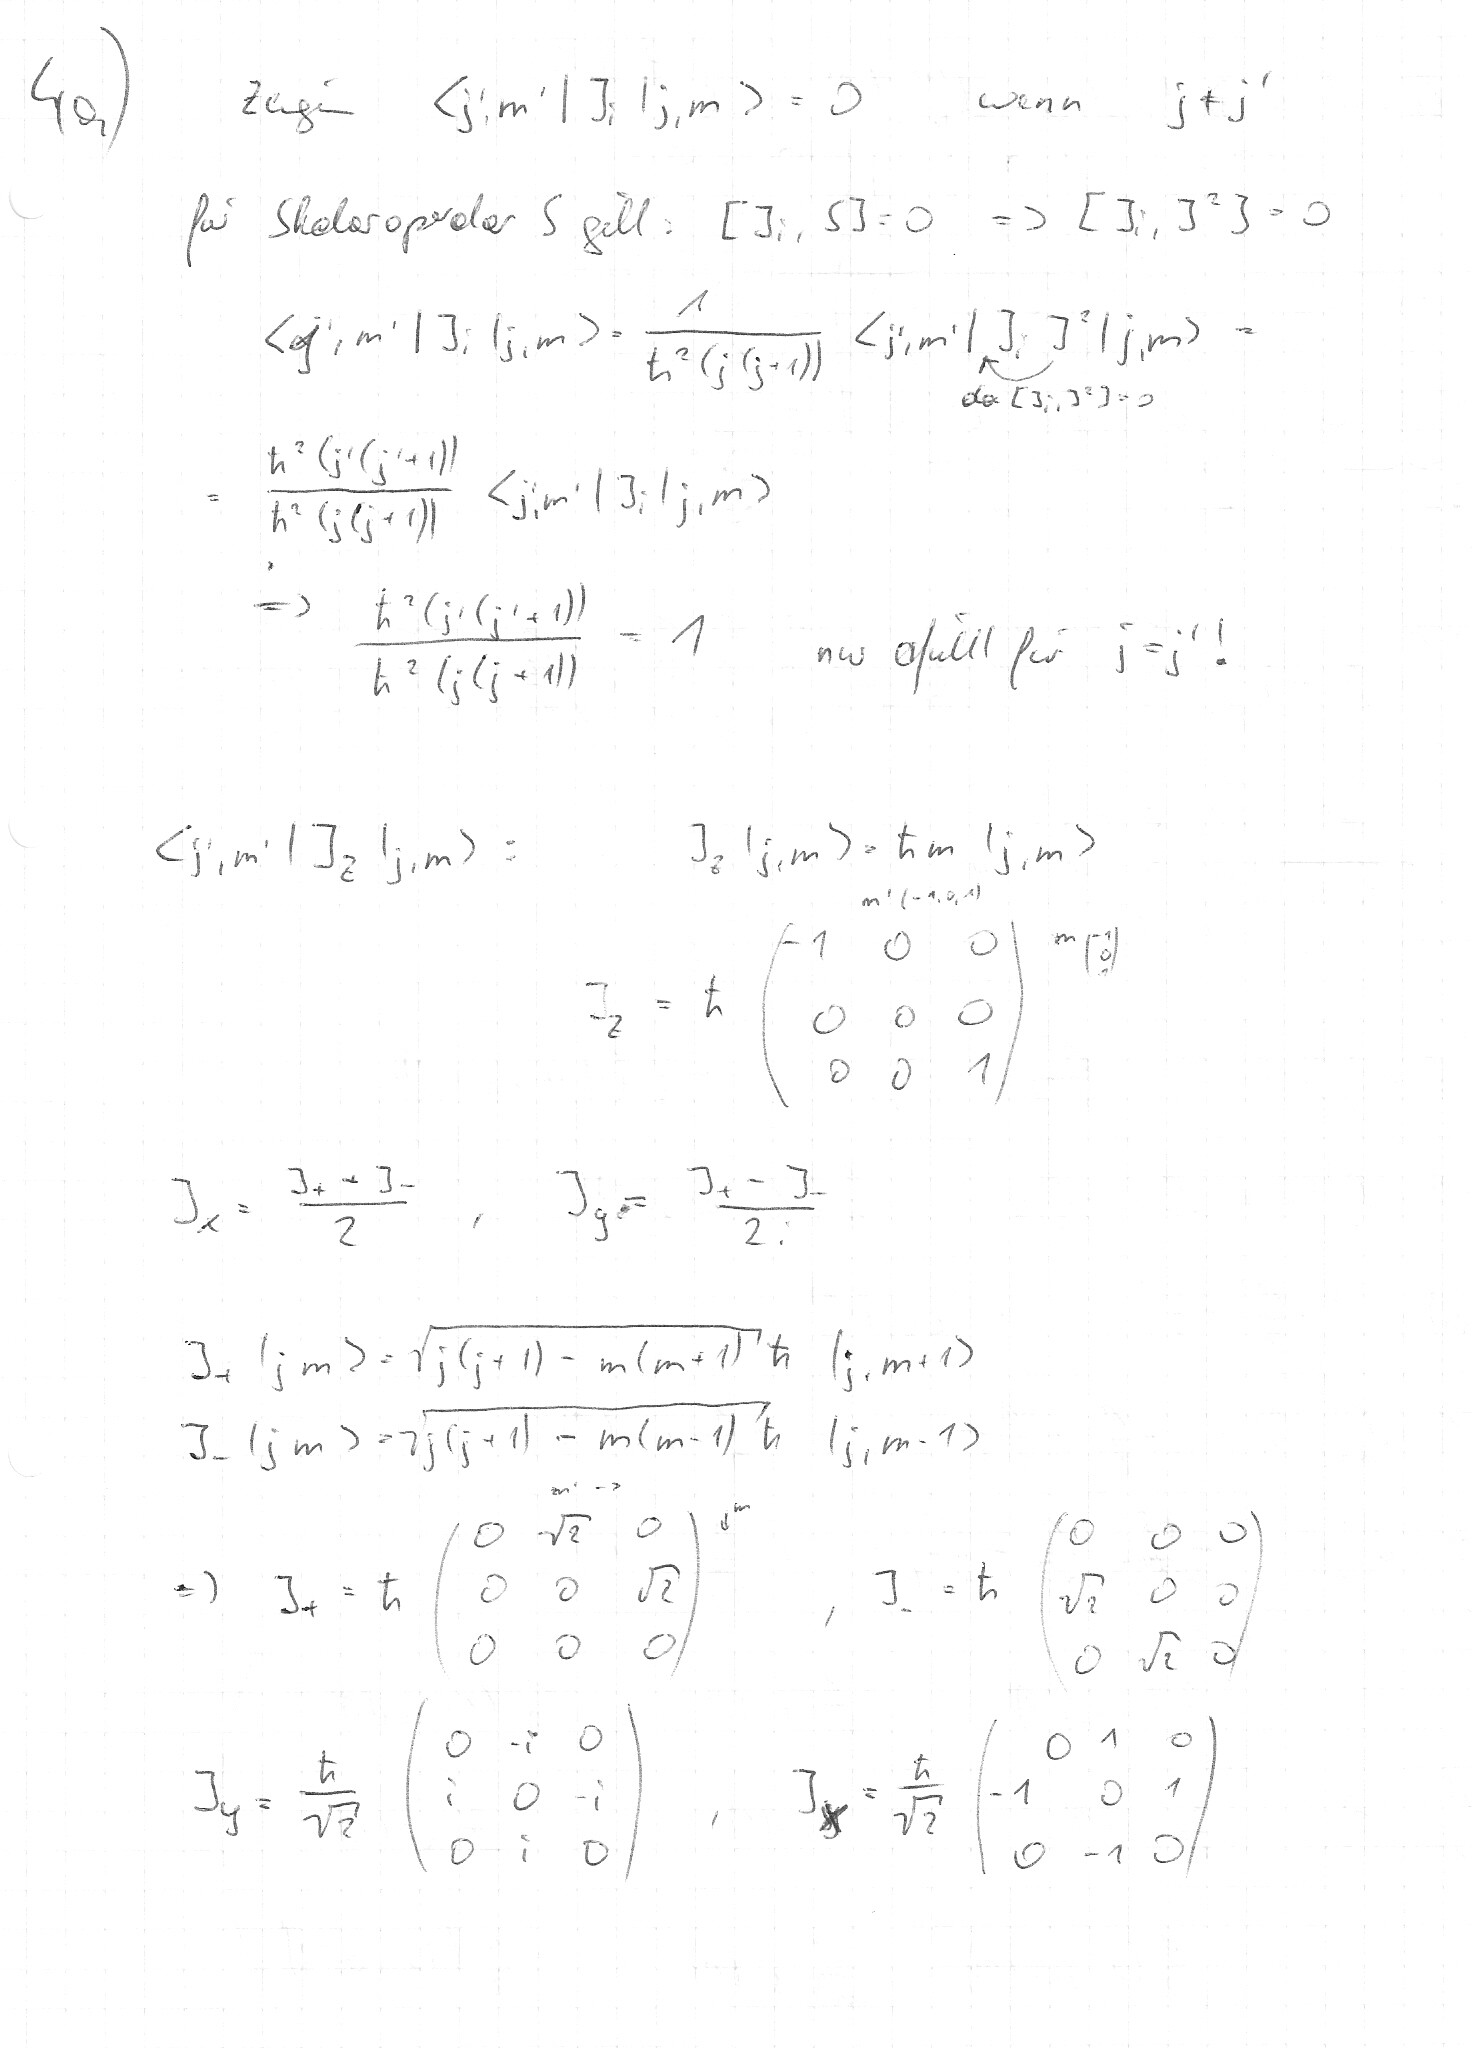 4a)
Zeigen <j',m'|J_i|j,m> = 0 wenn j ≠ j'
für Skalaroperator S gilt: [J_i, S] = 0 => [J_i, J²] = 0
<j',m'|J_i|j,m> = 1/(ħ²(j(j+1))) <j',m'|J_i J²|j,m> =
da [J_i, J²] = 0
= ħ²(j'(j'+1))/ħ²(j(j+1)) <j',m'|J_i|j,m>
=> ħ²(j'(j'+1))/ħ²(j(j+1)) = 1 nur erfüllt für j = j'!
<j',m'|J_z|j,m> = J_z|j,m> = ħm |j,m>
m'(-1,0,1)
J_z = ħ ( -1 0 0 ; 0 0 0 ; 0 0 1 ) m(-1 0 1)
J_x = (J_+ + J_-)/2 , J_y = (J_+ - J_-)/2i
J_+ |j m> = √(j(j+1) - m(m+1)) ħ |j,m+1>
J_- |j m> = √(j(j+1) - m(m-1)) ħ |j,m-1>
m' ->
=> J_+ = ħ ( 0 √2 0 ; 0 0 √2 ; 0 0 0 ) ↓m , J_- = ħ ( 0 0 0 ; √2 0 0 ; 0 √2 0 )
J_y = ħ/√2 ( 0 -i 0 ; i 0 -i ; 0 i 0 ) , J_x = ħ/√2 ( 0 1 0 ; -1 0 1 ; 0 -1 0 )